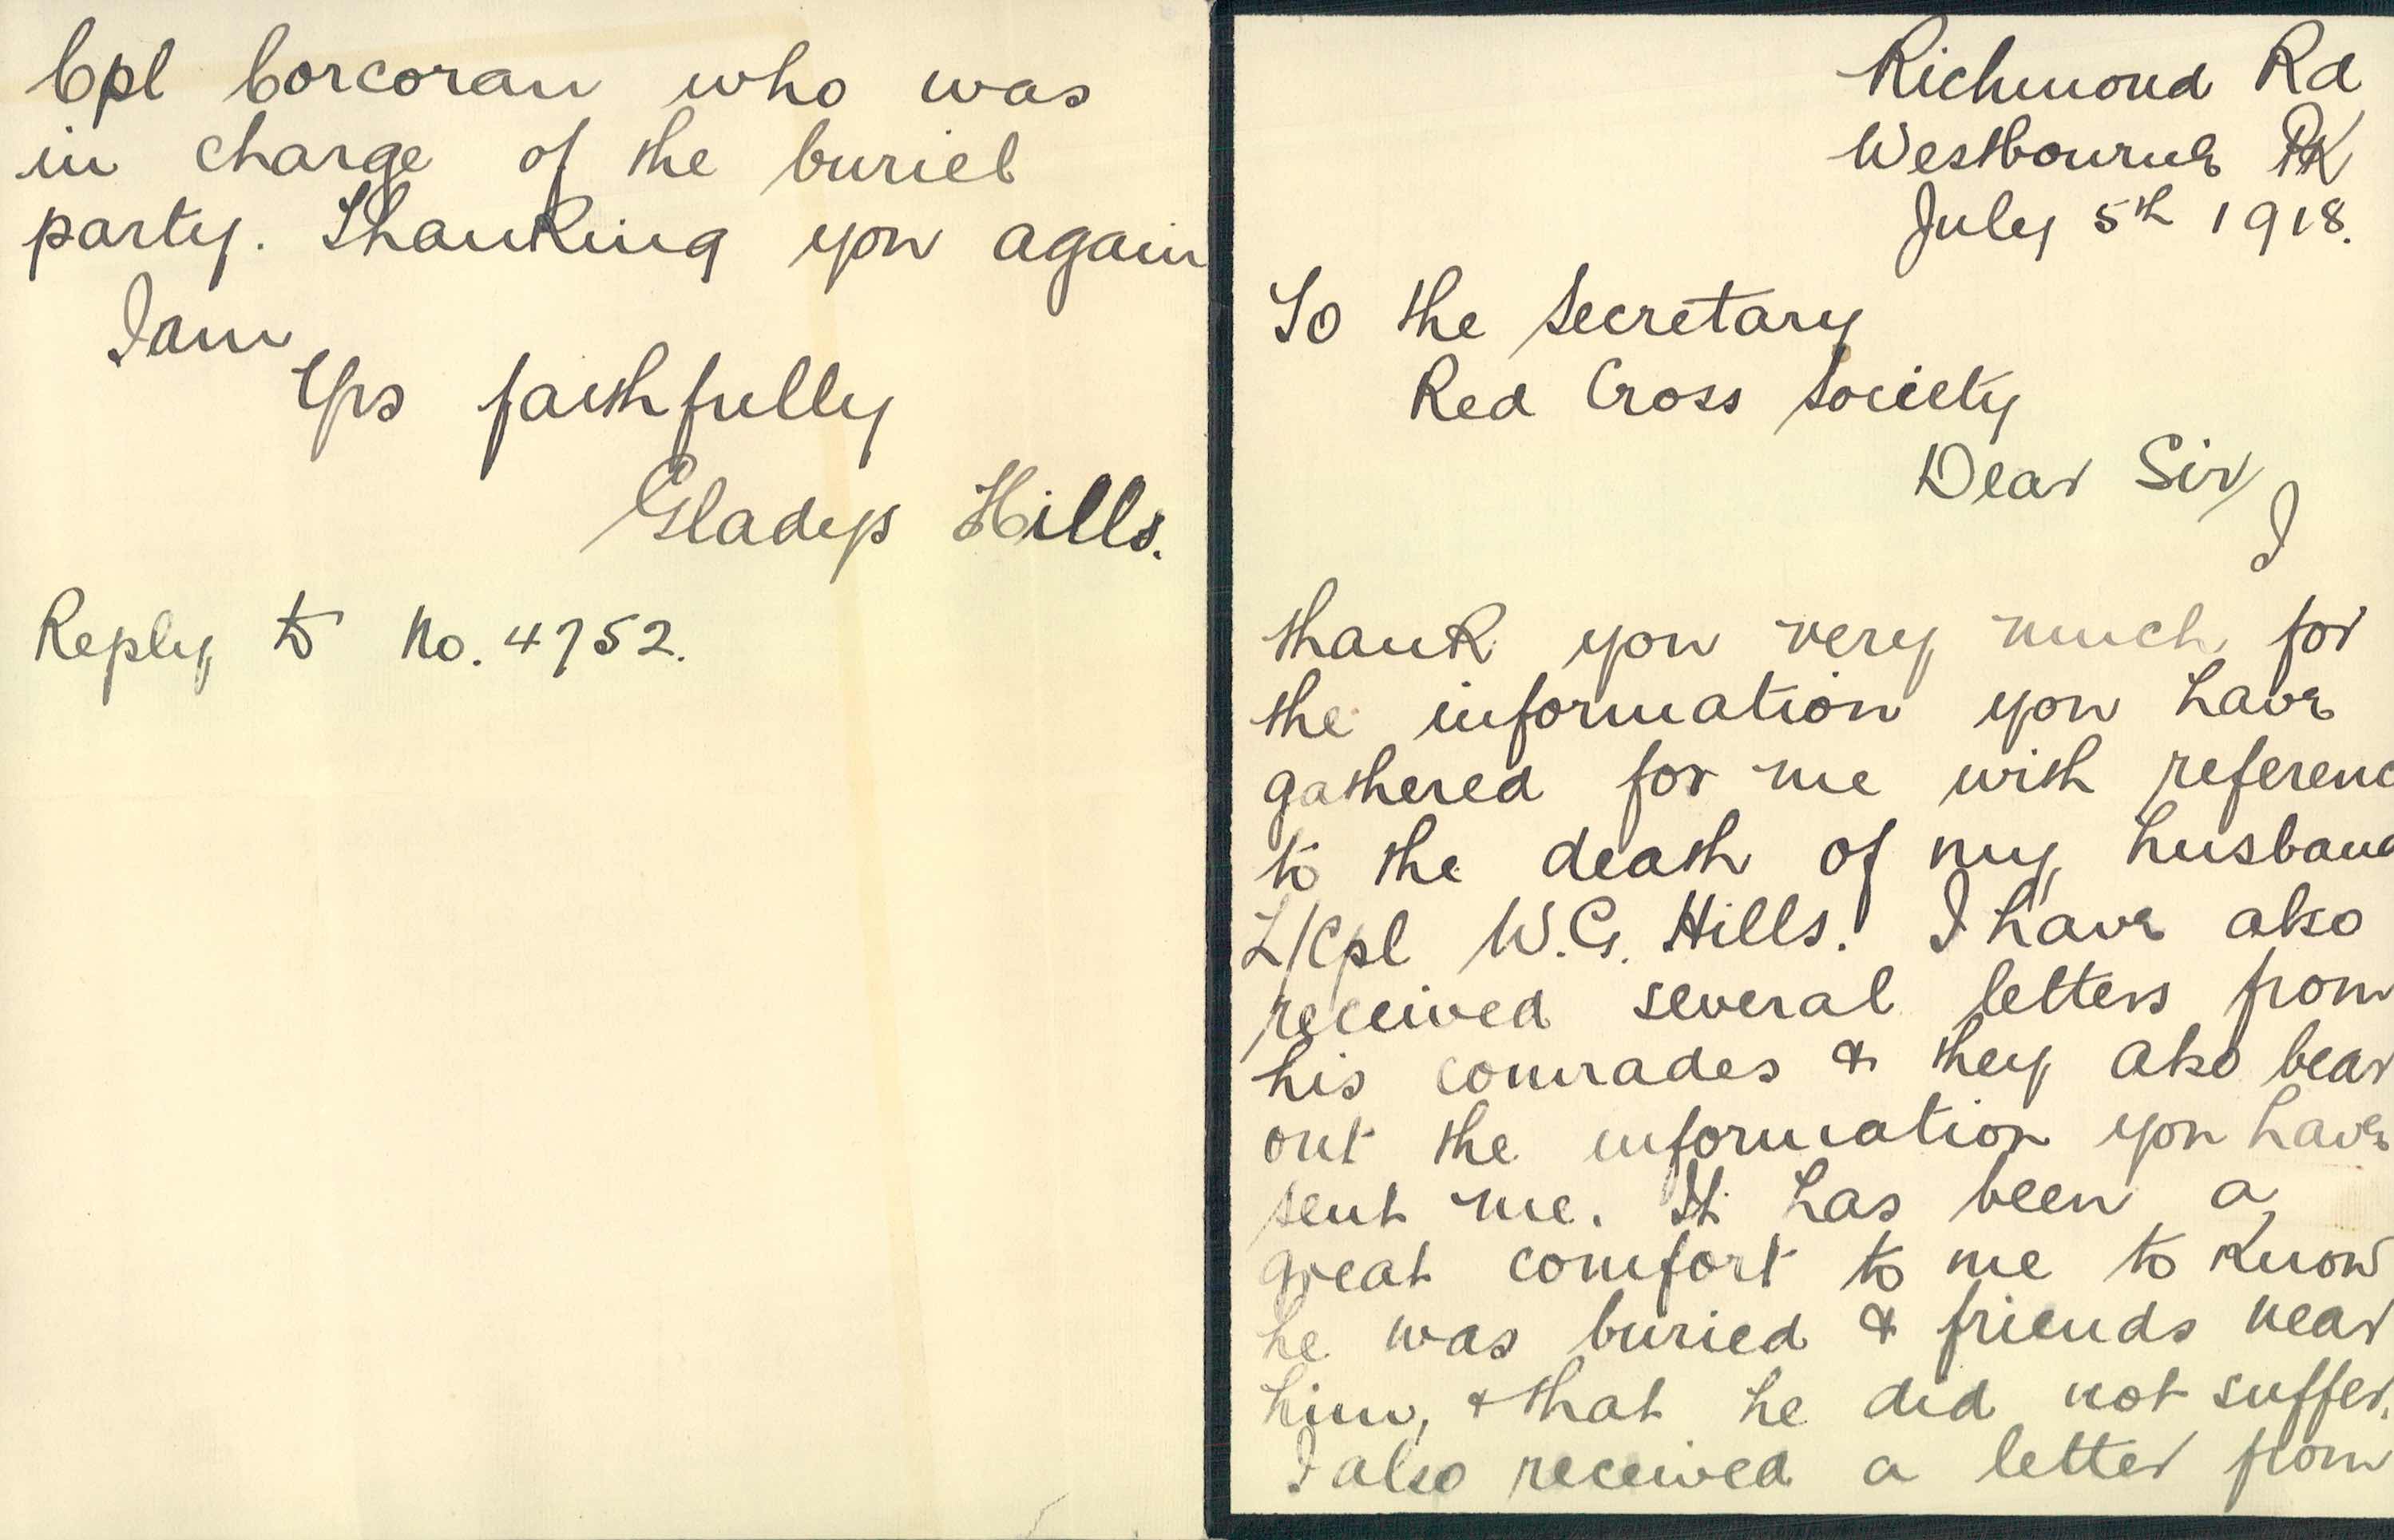 Richmond Rd
Westbourne PK
July 5th 1918.
To the Secretary
Red Cross Society
Dear Sir,
I
thank you very much for
the information you have
gathered for me with referenc
to the death of my husband
L/Cpl W.G. Hills. I have also
received several letters from
his comrades & they also bear
out the information you have
sent me. It has been a
great comfort to me to know
he was buried & friends near
him, & that he did not suffer.
I also received a letter from
Cpl Corcoran who was
in charge of the buriel
party. Thanking you again
I am
Yrs faithfully
Gladys Hills.
Reply to No. 4752.